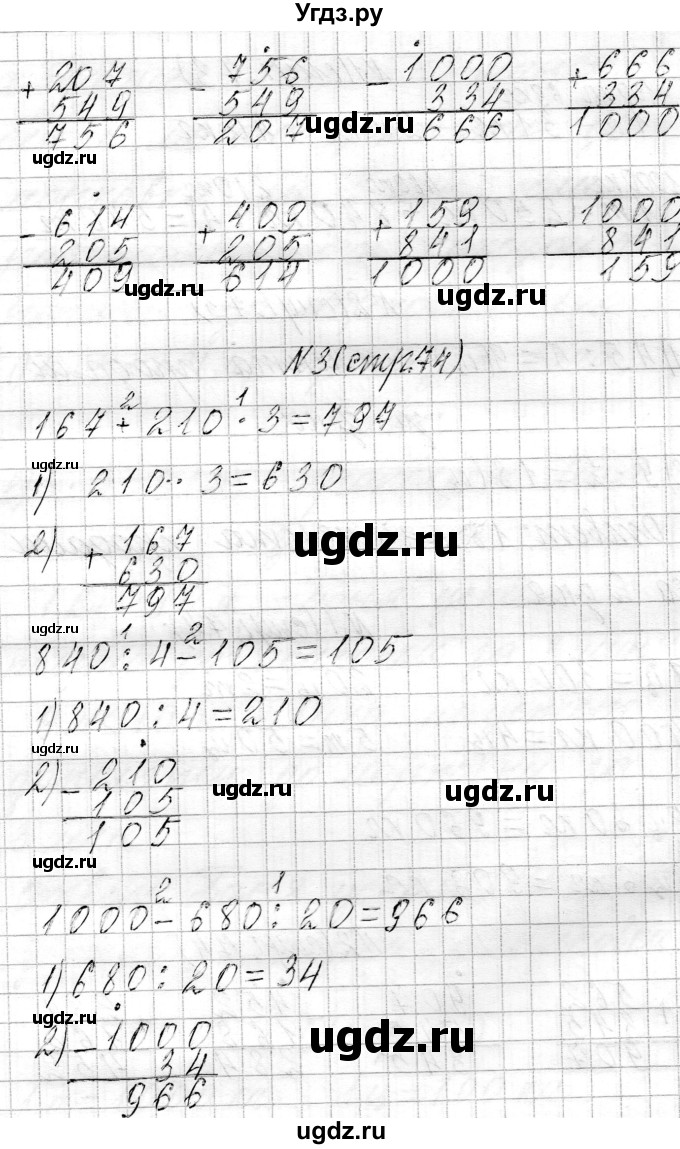 Угдз.ру
+ 207   - 756   - 1000   + 666
549   549   334   334
756   207   666   1000
ugdz.ru   ugdz.ru
- 614   + 409   + 159   - 1000
205   205   841   841
409   614   1000   159
ugdz.ru   ugdz.ru
N3(стр.74)
167 + 210 · 3 = 797
2   1
ugdz.ru
1) 210 · 3 = 630
2) + 167
630
797
ugdz.ru
ugdz.ru
1   2
840 : 4 - 105 = 105
1) 840 : 4 = 210
ugdz.ru
2) - 210
105
105
ugdz.ru   ugdz.ru
ugdz.ru
2   1
1000 - 680 : 20 = 966
1) 680 : 20 = 34
ugdz.ru
2) - 1000
34
966
ugdz.ru
ugdz.ru
ugdz.ru